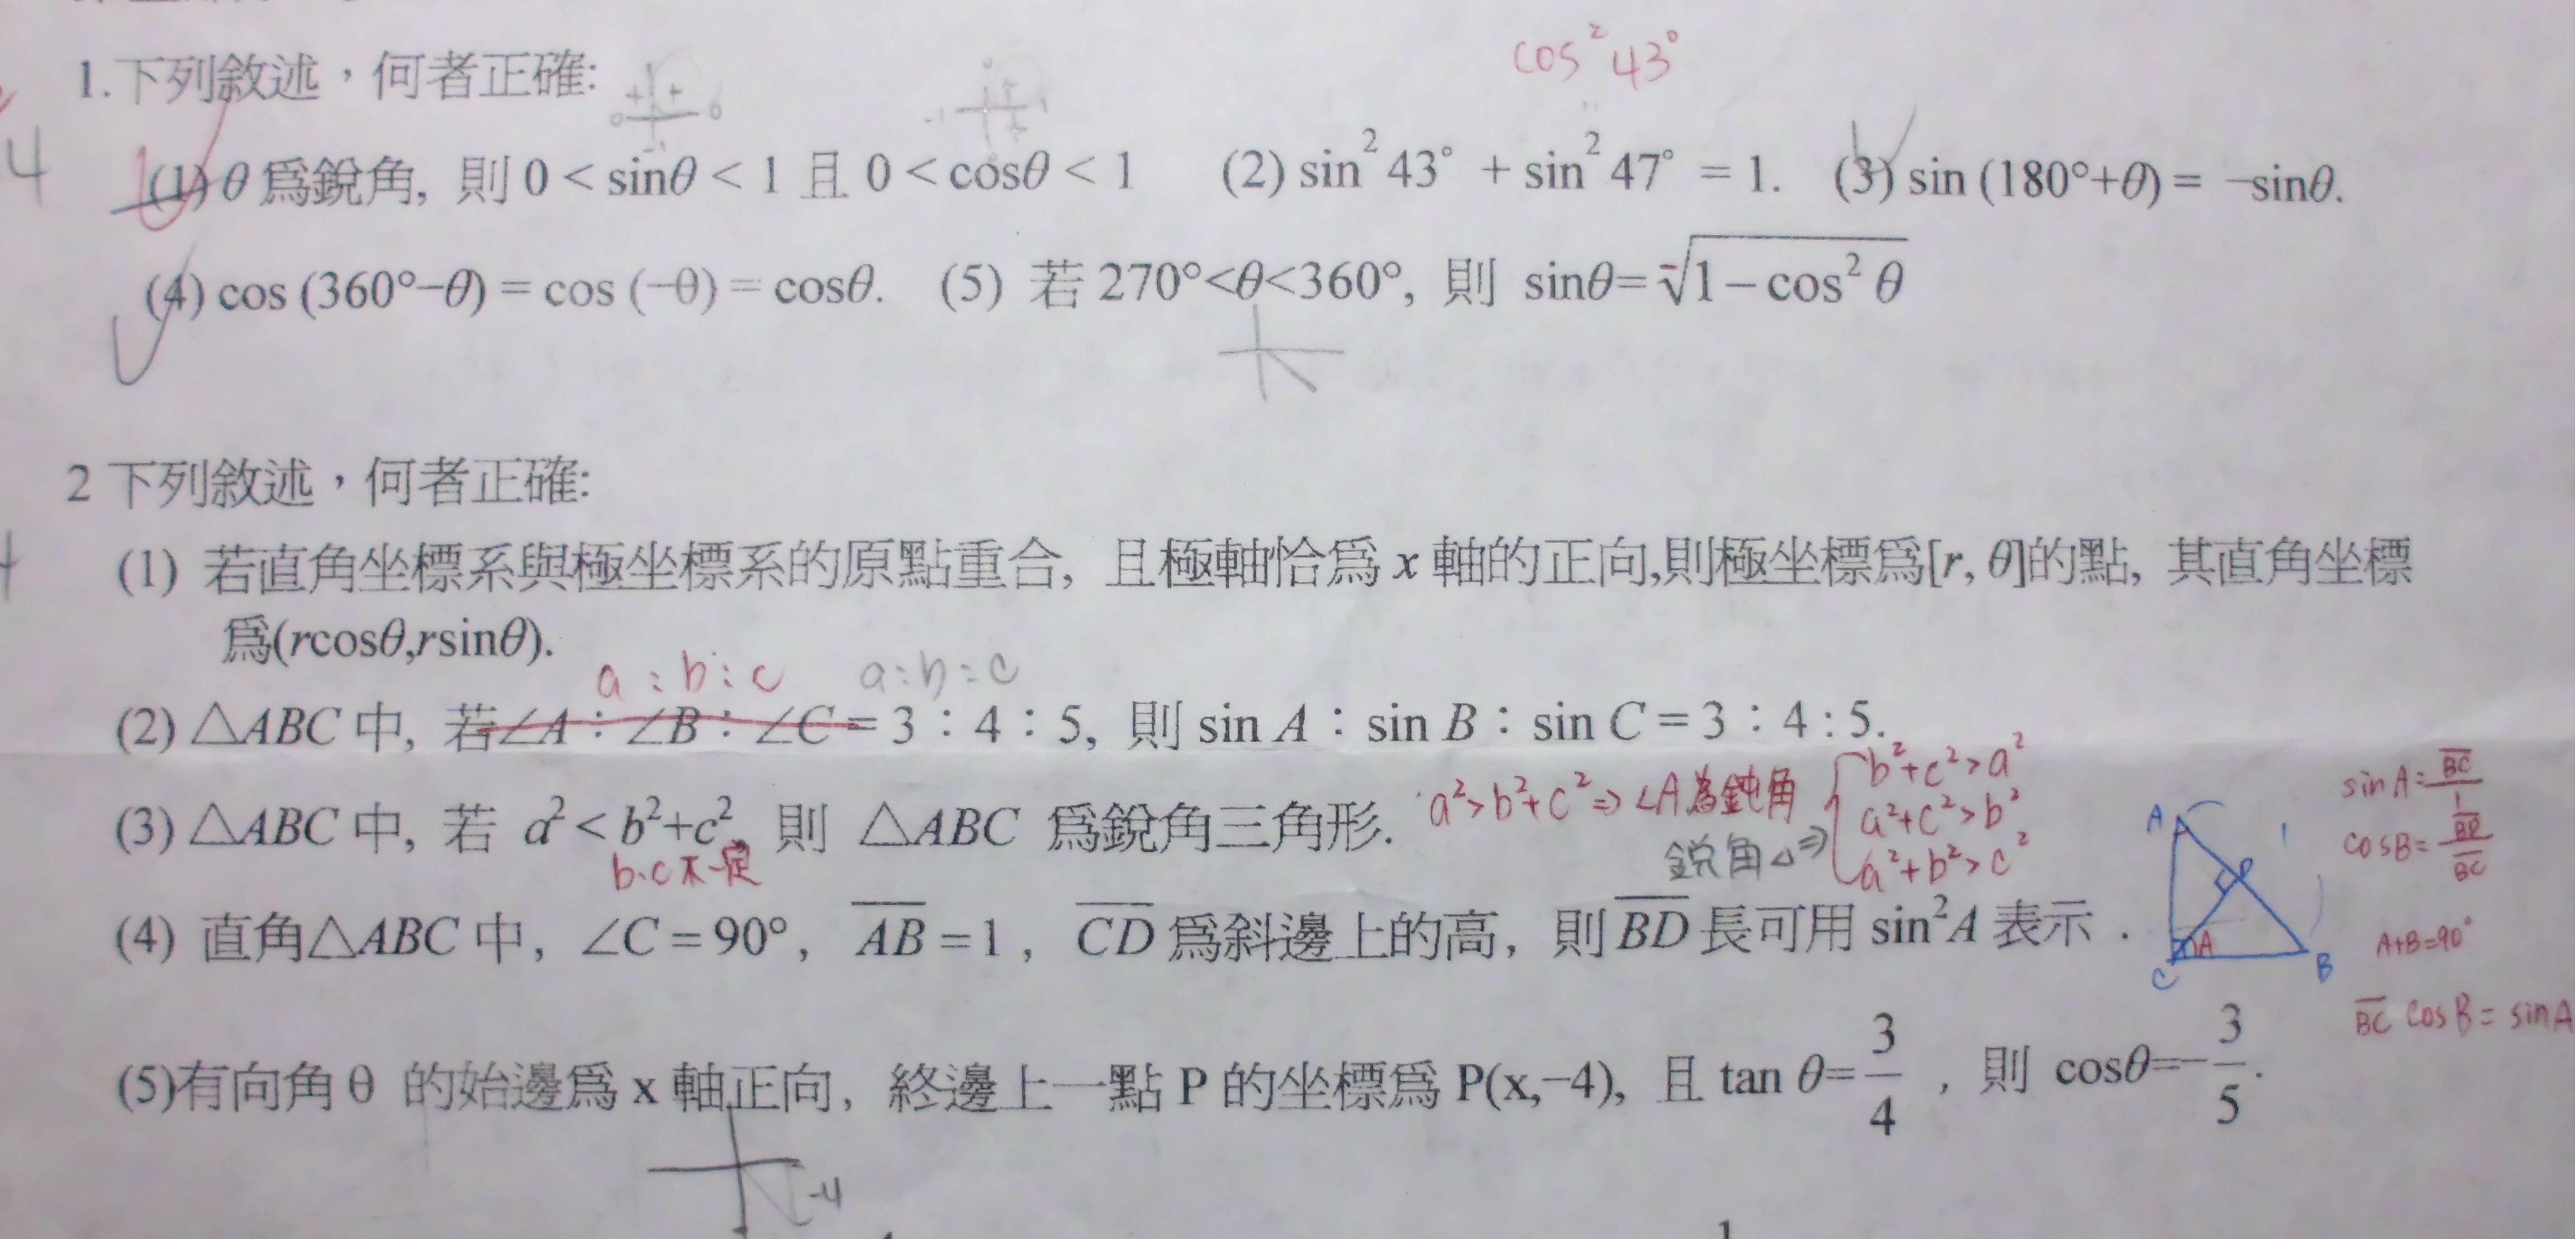 cos²43°
1.下列敘述，何者正確:
4
(1) θ 為銳角, 則 0 < sinθ < 1 且 0 < cosθ < 1 (2) sin²43° + sin²47° = 1. (3) sin (180°+θ) = −sinθ.
(4) cos (360°−θ) = cos (−θ) = cosθ. (5) 若 270°<θ<360°, 則 sinθ=-√1−cos²θ
2 下列敘述，何者正確:
(1) 若直角坐標系與極坐標系的原點重合, 且極軸恰為 x 軸的正向,則極坐標為[r, θ]的點, 其直角坐標
為(rcosθ,rsinθ).
a:b:c a:b:c
(2) △ABC 中, 若∠A：∠B：∠C = 3：4：5, 則 sin A：sin B：sin C = 3：4 : 5.
(3) △ABC 中, 若 a² < b²+c², 則 △ABC 為銳角三角形. a²>b²+c² ⇒ ∠A為鈍角
b.c不一定
銳角△⇒
b²+c²>a²
a²+c²>b²
a²+b²>c²
sinA= BC/1
cosB= BD/BC
(4) 直角△ABC 中, ∠C = 90°, AB = 1, CD 為斜邊上的高, 則 BD 長可用 sin²A 表示.
A
D
A
C
B
A+B=90°
BC cosB = sinA
(5)有向角θ 的始邊為 x 軸正向, 終邊上一點 P 的坐標為 P(x,−4), 且 tan θ=3/4, 則 cosθ=−3/5.
-4